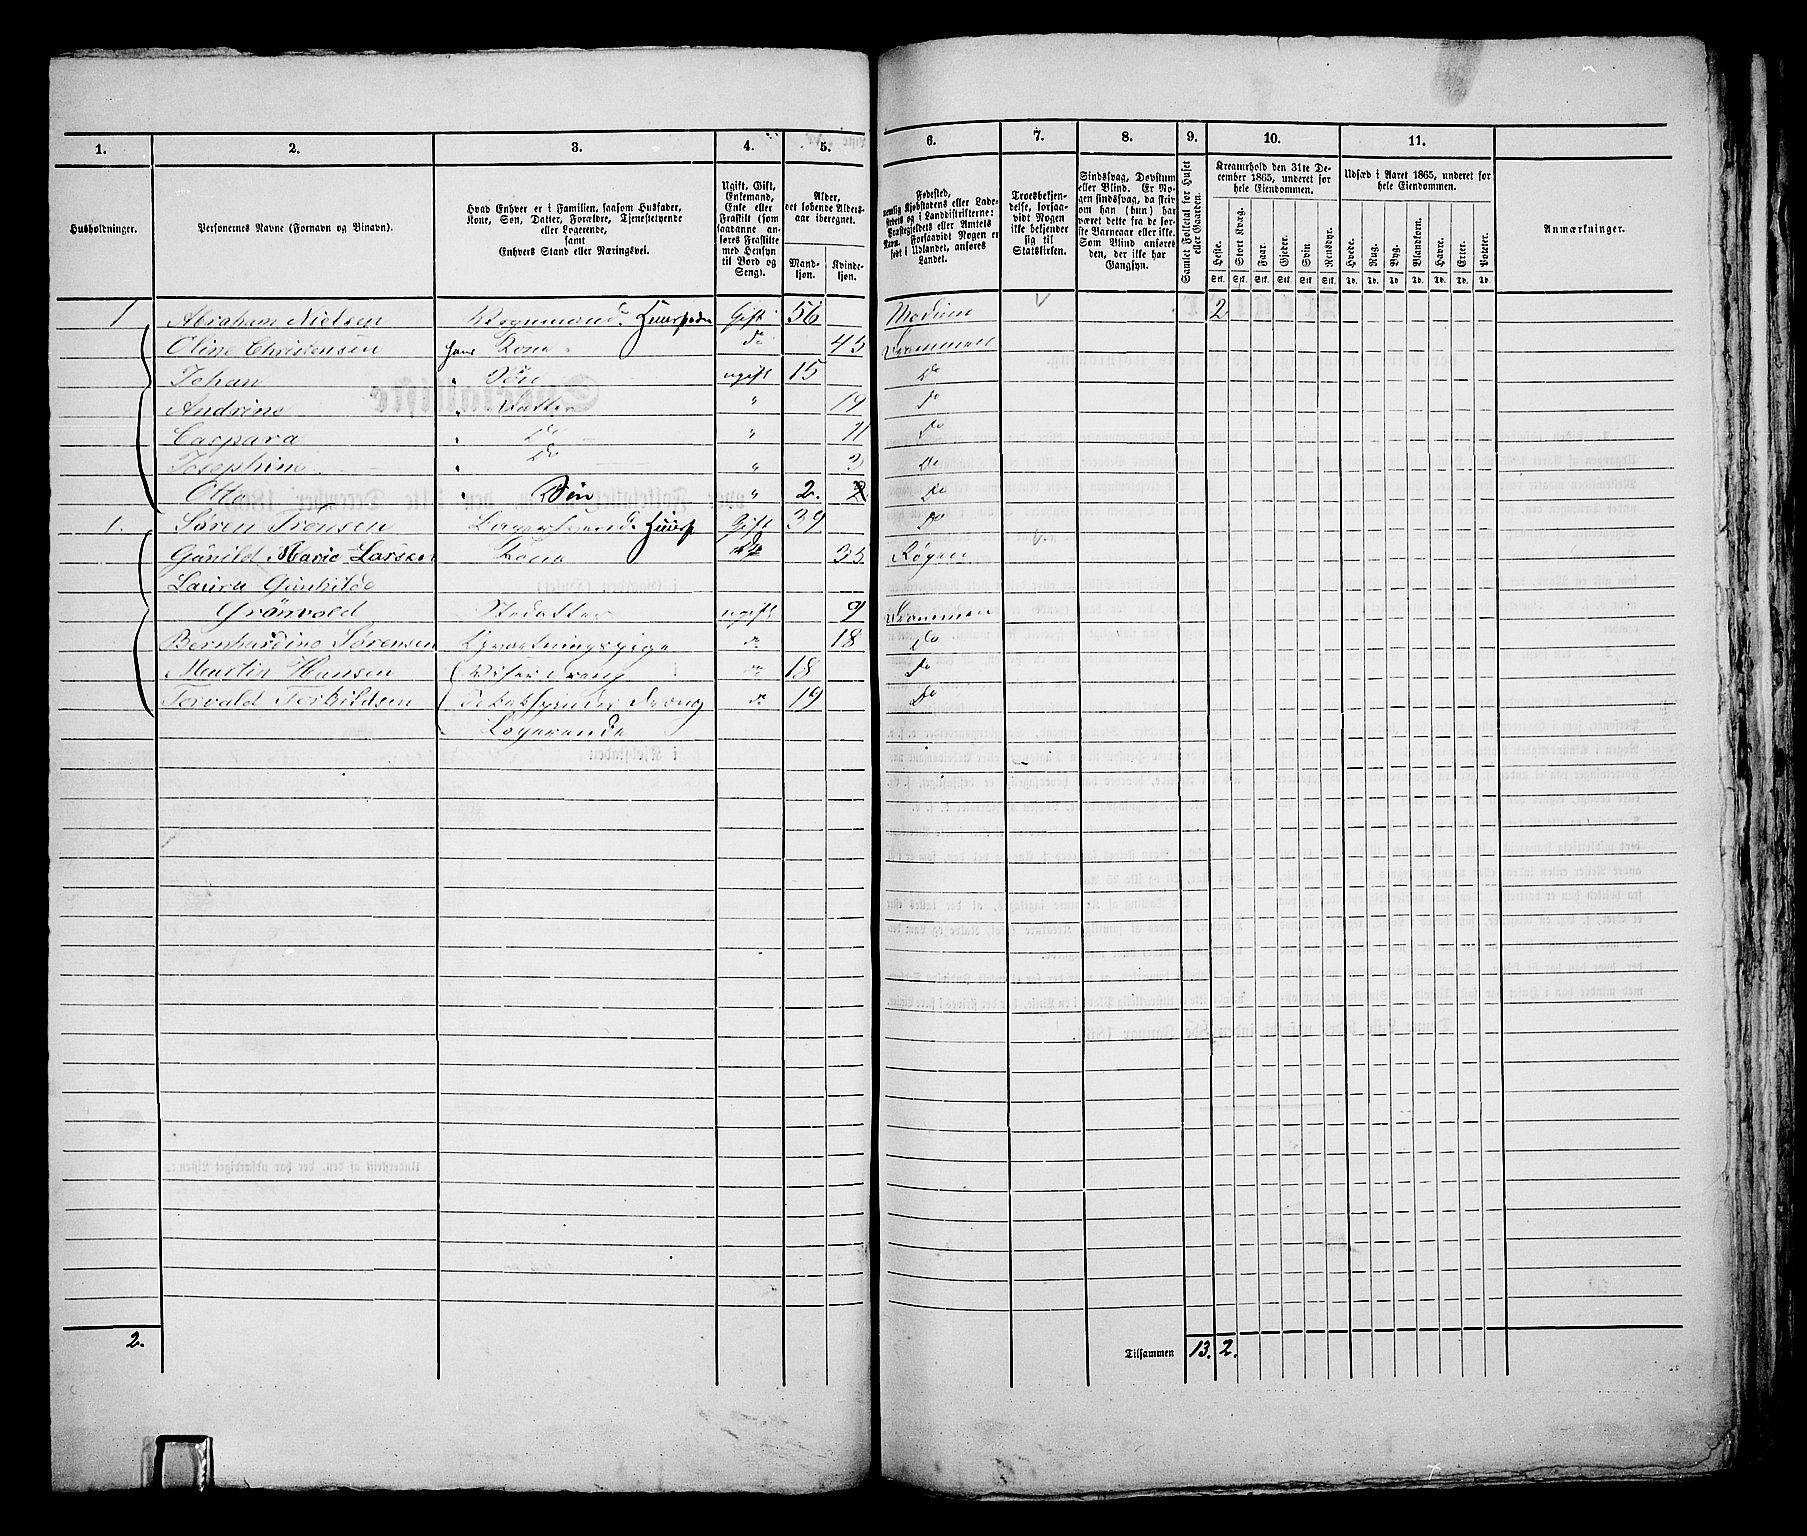 1. 2. 3. 4. 5. 6. 7. 8. 9. 10. 11.
Husholdninger.
Personernes Navne (Fornavn og Binavn).
Hvad Enhver er i Familien, saasom Husfader,
Kone, Søn, Datter, Forældre, Tjenestetyende
eller Logerende,
samt
Enhvers Stand eller Næringsvei.
Ugift, Gift,
Enkemand,
Enke eller
Fraskilt (som
saadanne an-
føres Fraskilte
med Hensyn
til Bord og
Seng).
Alder,
det løbende Alders-
aar iberegnet.
Mand-
kjøn.
Kvinde-
kjøn.
Fødested,
nemlig Kjøbstadens eller Lade-
stedets og i Landdistrikterne:
Præstegjeldets eller Amtets
Navn. Forsaavidt Nogen er
født i Udlandet, anføres
Landet.
Troesbekjen-
delse, forsaa-
vidt Nogen
ikke bekjender
sig til
Statskirken.
Sindssvag, Døvstum
eller Blind. Er No-
gen sindssvag, da skriv
om han (hun) har
været dette fra de før-
ste Barneaar eller ikke.
Som Blind anføres
den, der ikke har
Gangsyn.
Samlet Folketal for Huset
eller Gaarden.
Kreaturhold den 31te De-
cember 1865, underet for
hele Eiendommen.
Heste. Stort Kvæg. Faar. Gjeder. Svin. Rensdyr.
Stk. Stk. Stk. Stk. Stk. Stk.
Udsæd i Aaret 1865, underet for
hele Eiendommen.
Hvede. Rug. Byg. Blandkorn. Havre. Erter. Poteter.
Td. Td. Td. Td. Td. Td. Td.
Anmærkninger.
1 Abraham Nielsen Vognmand. Huusfader Gift 56 Modum 2
Oline Christensen hans Kone do 45 Drammen
Johan " Søn ugift 15 Do
Andrine " Datter " 14 Do
Caspara " Do " 11 Do
Josephine " Do " 3 Do
Otto " Søn " 2. 2 Do
1. Søren Huusf Gift 39 Do
Gunild Marie Larsen Kone do 35 Røgen
Laura Gunhilde
Grönvold Stedatter ugift 9 Drammen
Bernhardine Sørensen Opvartningspige do 18 Do
Martin Hansen do 18 Do
Torvald Torkildsen do 19 Do
Logerende
2.
Tilsammen 13. 2.